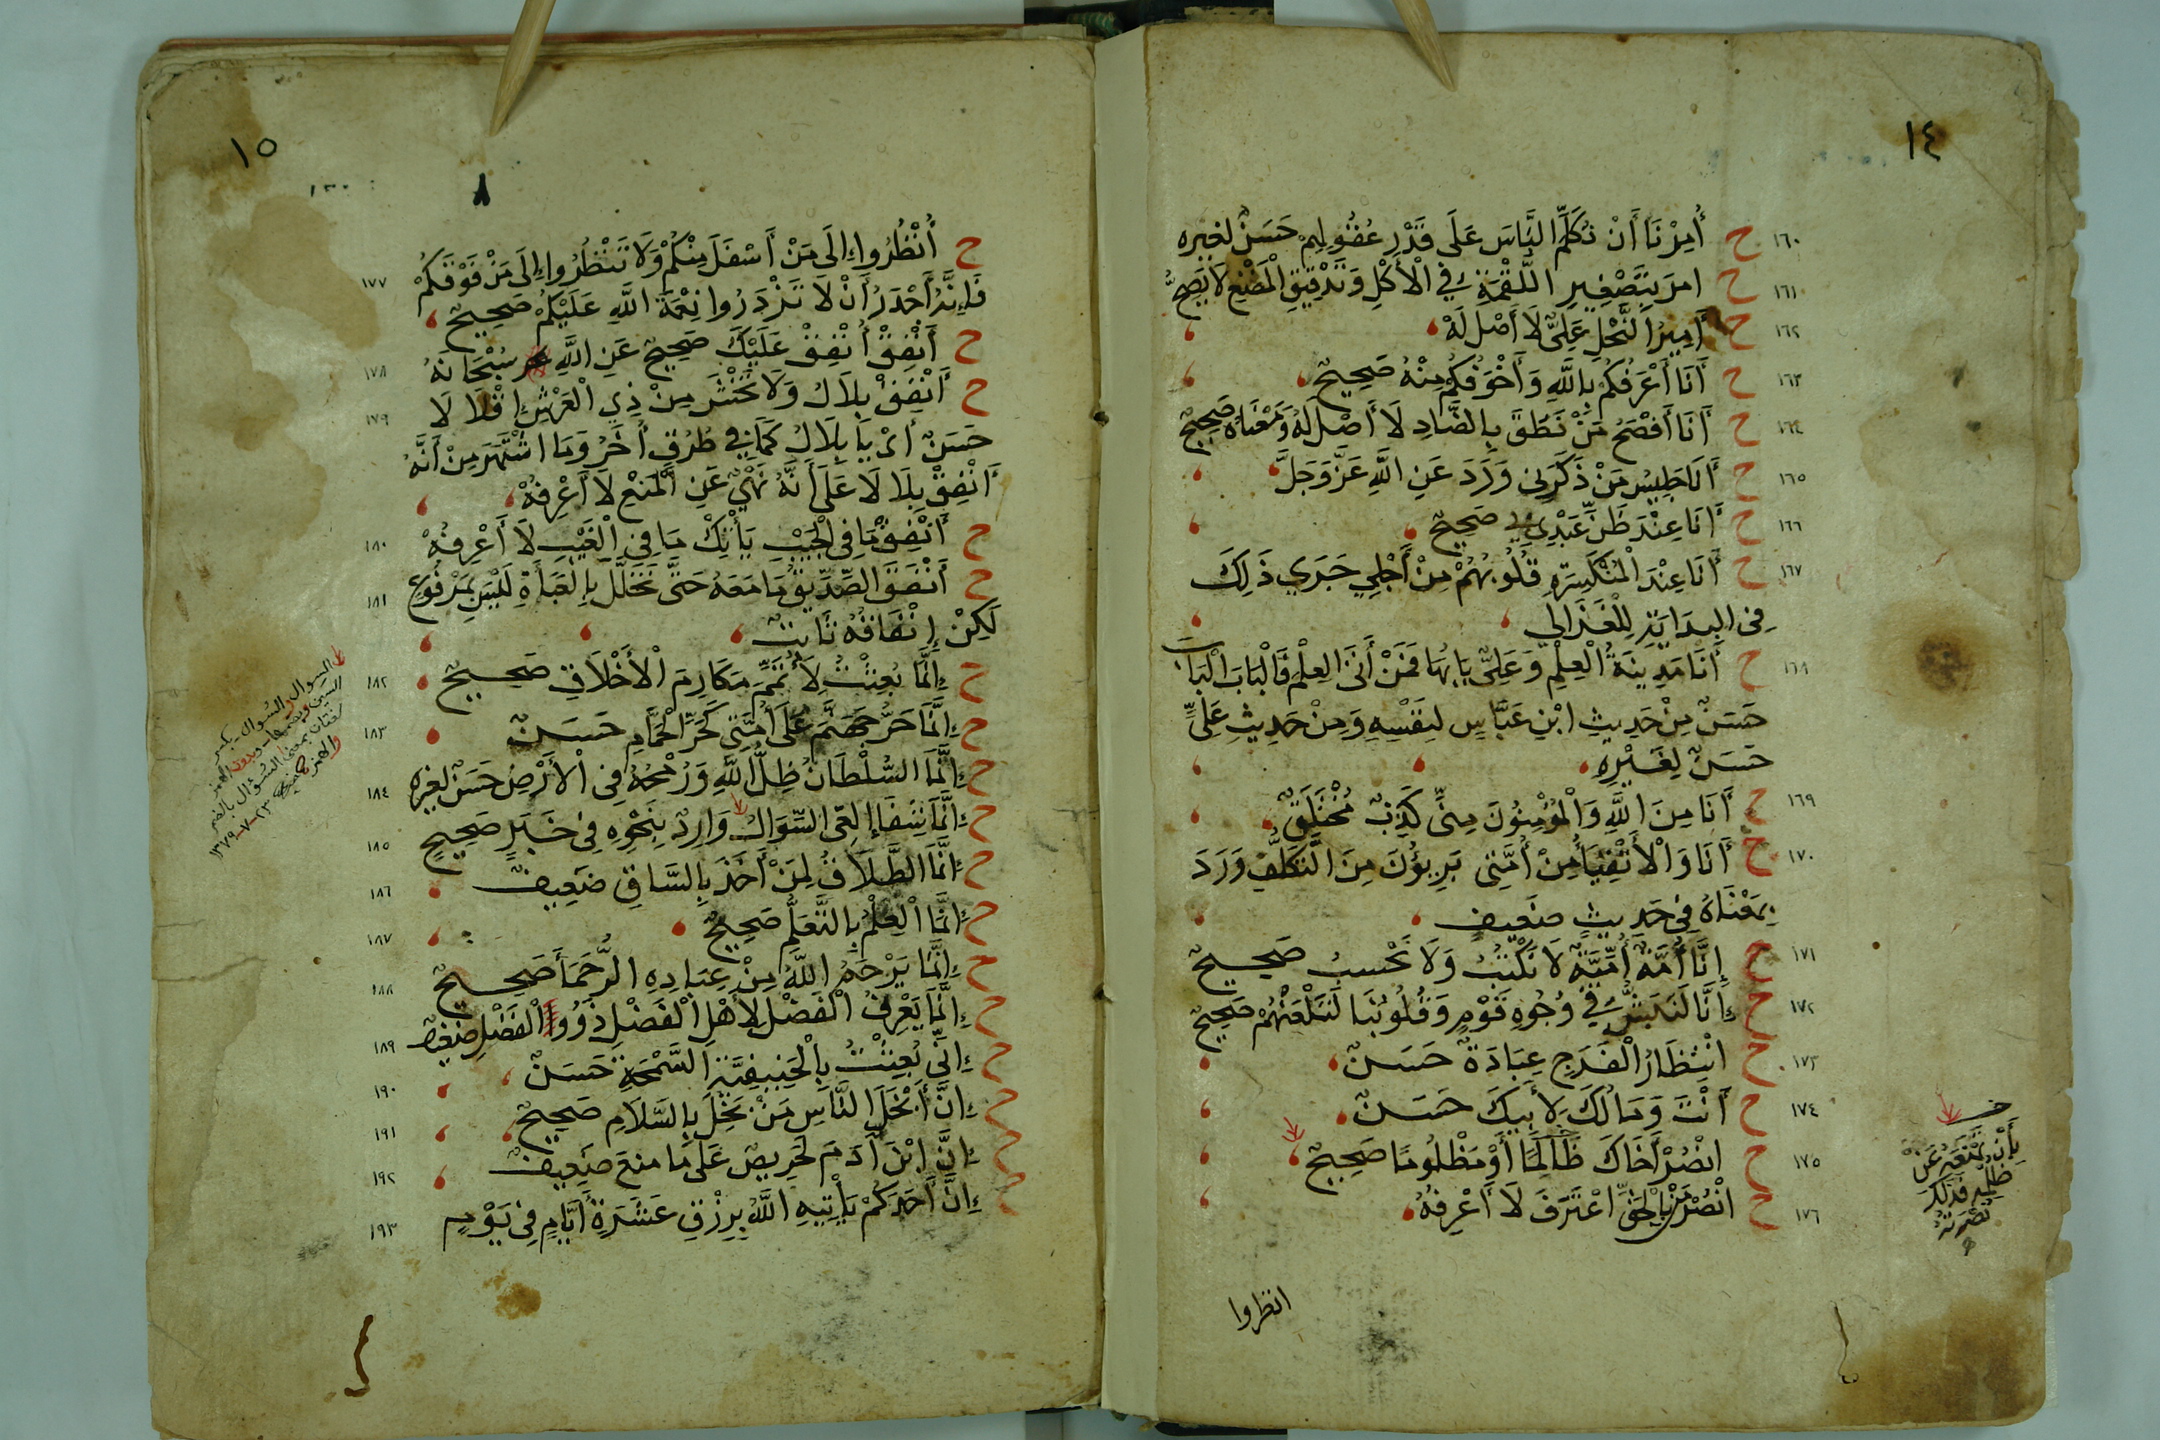 ١٤
١٦٠ ح أُمِرْنَا أَنْ نُكَلِّمَ النَّاسَ عَلَى قَدْرِ عُقُولِهِمْ حَسَنٌ لغيره
١٦١ ح امر بِتَصْغِيرِ اللُّقْمَةِ فِي الْأَكْلِ وَتَدْقِيقِ الْمَضْغِ لَا يَصِحُّ
١٦٢ ح أَمِيرُ النَّحْلِ عَلِيٌّ لَا أَصْلَ لَهُ
١٦٣ ح أَنَا أَعْرَفُكُمْ بِاللَّهِ وَأَخْوَفُكُمْ مِنْهُ صَحِيحٌ
١٦٤ ح أَنَا أَفْصَحُ مَنْ نَطَقَ بِالضَّادِ لَا أَصْلَ لَهُ وَمَعْنَاهُ صَحِيحٌ
١٦٥ ح أَنَا جَلِيسُ مَنْ ذَكَرَنِي وَرَدَ عَنِ اللَّهِ عَزَّ وَجَلَّ
١٦٦ ح أَنَا عِنْدَ ظَنِّ عَبْدِي بِي صَحِيحٌ
١٦٧ ح أَنَا عِنْدَ الْمُنْكَسِرَةِ قُلُوبُهُمْ مِنْ أَجْلِي جَرَى ذَلِكَ
فِي البِدَايَةِ لِلْغَزَالِي
١٦٨ ح أَنَا مَدِينَةُ الْعِلْمِ وَعَلِيٌّ بَابُهَا فَمَنْ أَتَى العِلْمَ فَالْبَابَ الْبَابَ
حَسَنٌ مِنْ حَدِيثِ ابْنِ عَبَّاسٍ لِنَفْسِهِ وَمِنْ حَدِيثِ عَلِيٍّ
حَسَنٌ لِغَيْرِهِ
١٦٩ ح أَنَا مِنَ اللَّهِ وَالْمُؤْمِنُونَ مِنِّي كَذِبٌ مُخْتَلَقٌ
١٧٠ ح أَنَا وَالْأَتْقِيَاءُ مِنْ أُمَّتِي بَرِيؤُنَ مِنَ التَّكَلُّفِ وَرَدَ
بِمَعْنَاهُ فِي حَدِيثٍ ضَعِيفٍ
١٧١ ح إِنَّا أُمَّةٌ أُمِّيَّةٌ لَا نَكْتُبُ وَلَا نَحْسِبُ صَحِيحٌ
١٧٢ ح إِنَّا لَنَبَشُّ فِي وُجُوهِ قَوْمٍ وَقُلُوبُنَا لَتَلْعَنُهُمْ صَحِيحٌ
١٧٣ ح انْتِظَارُ الْفَرَجِ عِبَادَةٌ حَسَنٌ
١٧٤ ح أَنْتَ وَمَالُكَ لِأَبِيكَ حَسَنٌ
١٧٥ ح انْصُرْ أَخَاكَ ظَالِمًا أَوْ مَظْلُومًا صَحِيحٌ
١٧٦ ح انْصُرْ مَنْ بِالْحَقِّ اعْتَرَفَ لَا أَعْرِفُهُ
بِأَنْ تَمْنَعَهُ عَنْ
ظُلْمِهِ فَذَلِكَ
نُصْرَتُهُ
انظروا
١٥
٨
١٧٧ ح أُنْظُرُوا إِلَى مَنْ أَسْفَلَ مِنْكُمْ وَلَا تَنْظُرُوا إِلَى مَنْ فَوْقَكُمْ
فَإِنَّهُ أَجْدَرُ أَنْ لَا تَزْدَرُوا نِعْمَةَ اللَّهِ عَلَيْكُمْ صَحِيحٌ
١٧٨ ح أَنْفِقْ أُنْفِقْ عَلَيْكَ صَحِيحٌ عَنِ اللَّهِ سُبْحَانَهُ
١٧٩ ح أَنْفِقْ بِلَالُ وَلَا تَخْشَ مِنْ ذِي الْعَرْشِ إِقْلَالَا
حَسَنٌ أَيْ يَا بِلَالُ كَمَا فِي طُرُقٍ أُخَرُ وَمَا اشْتَهَرَ مِنْ أَنَّهُ
أَنْفِقْ بِلَا لَا عَلَى أَنَّهُ نَهْيٌ عَنِ الْمَنْعِ لَا أَعْرِفُهُ
١٨٠ ح أَنْفِقْ مَا فِي الْجَيْبِ يَأْتِكَ مَا فِي الْغَيْبِ لَا أَعْرِفُهُ
١٨١ ح أَنْفَقَ الصِّدِّيقُ مَا مَعَهُ حَتَّى تَخَلَّلَ بِالْعَبَاءَةِ لَيْسَ بِمَرْفُوعٍ
لَكِنْ إِنْفَاقُهُ ثَابِتٌ
١٨٢ ح إِنَّمَا بُعِثْتُ لِأُتَمِّمَ مَكَارِمَ الْأَخْلَاقِ صَحِيحٌ
١٨٣ ح إِنَّمَا حَرُّ جَهَنَّمَ عَلَى أُمَّتِي كَحَرِّ الْحَمَّامِ حَسَنٌ
١٨٤ ح إِنَّمَا السُّلْطَانُ ظِلُّ اللَّهِ وَرُمْحُهُ فِي الْأَرْضِ حَسَنٌ لغيره
١٨٥ ح إِنَّمَا شِفَاءُ العِيِّ السِّوَالُ وَارِدٌ بِنَحْوِهِ فِي خَبَرٍ صَحِيحٍ
١٨٦ ح إِنَّمَا الطَّلَاقُ لِمَنْ أَخَذَ بِالسَّاقِ ضَعِيفٌ
١٨٧ ح إِنَّمَا الْعِلْمُ بِالتَّعَلُّمِ صَحِيحٌ
١٨٨ ح إِنَّمَا يَرْحَمُ اللَّهُ مِنْ عِبَادِهِ الرُّحَمَاءَ صَحِيحٌ
١٨٩ ح إِنَّمَا يَعْرِفُ الْفَضْلَ لِأَهْلِ الْفَضْلِ ذَوُو الْفَضْلِ ضَعِيفٌ
١٩٠ ح إِنِّي بُعِثْتُ بِالْحَنِيفِيَّةِ السَّمْحَةِ حَسَنٌ
١٩١ ح إِنَّ أَبْخَلَ النَّاسِ مَنْ بَخِلَ بِالسَّلَامِ صَحِيحٌ
١٩٢ ح إِنَّ ابْنَ آدَمَ لَحَرِيصٌ عَلَى مَا مُنِعَ ضَعِيفٌ
١٩٣ ح إِنَّ أَحَدَكُمْ يَأْتِيهِ اللَّهُ بِرِزْقِ عَشَرَةِ أَيَّامٍ فِي يَوْمٍ
السوال والسُوال بكسر
السين وبضمها وبدون الهمز
لغتان بمعنى السُؤال بالضم
والهمز
٢٣-٧-١٣٧٩